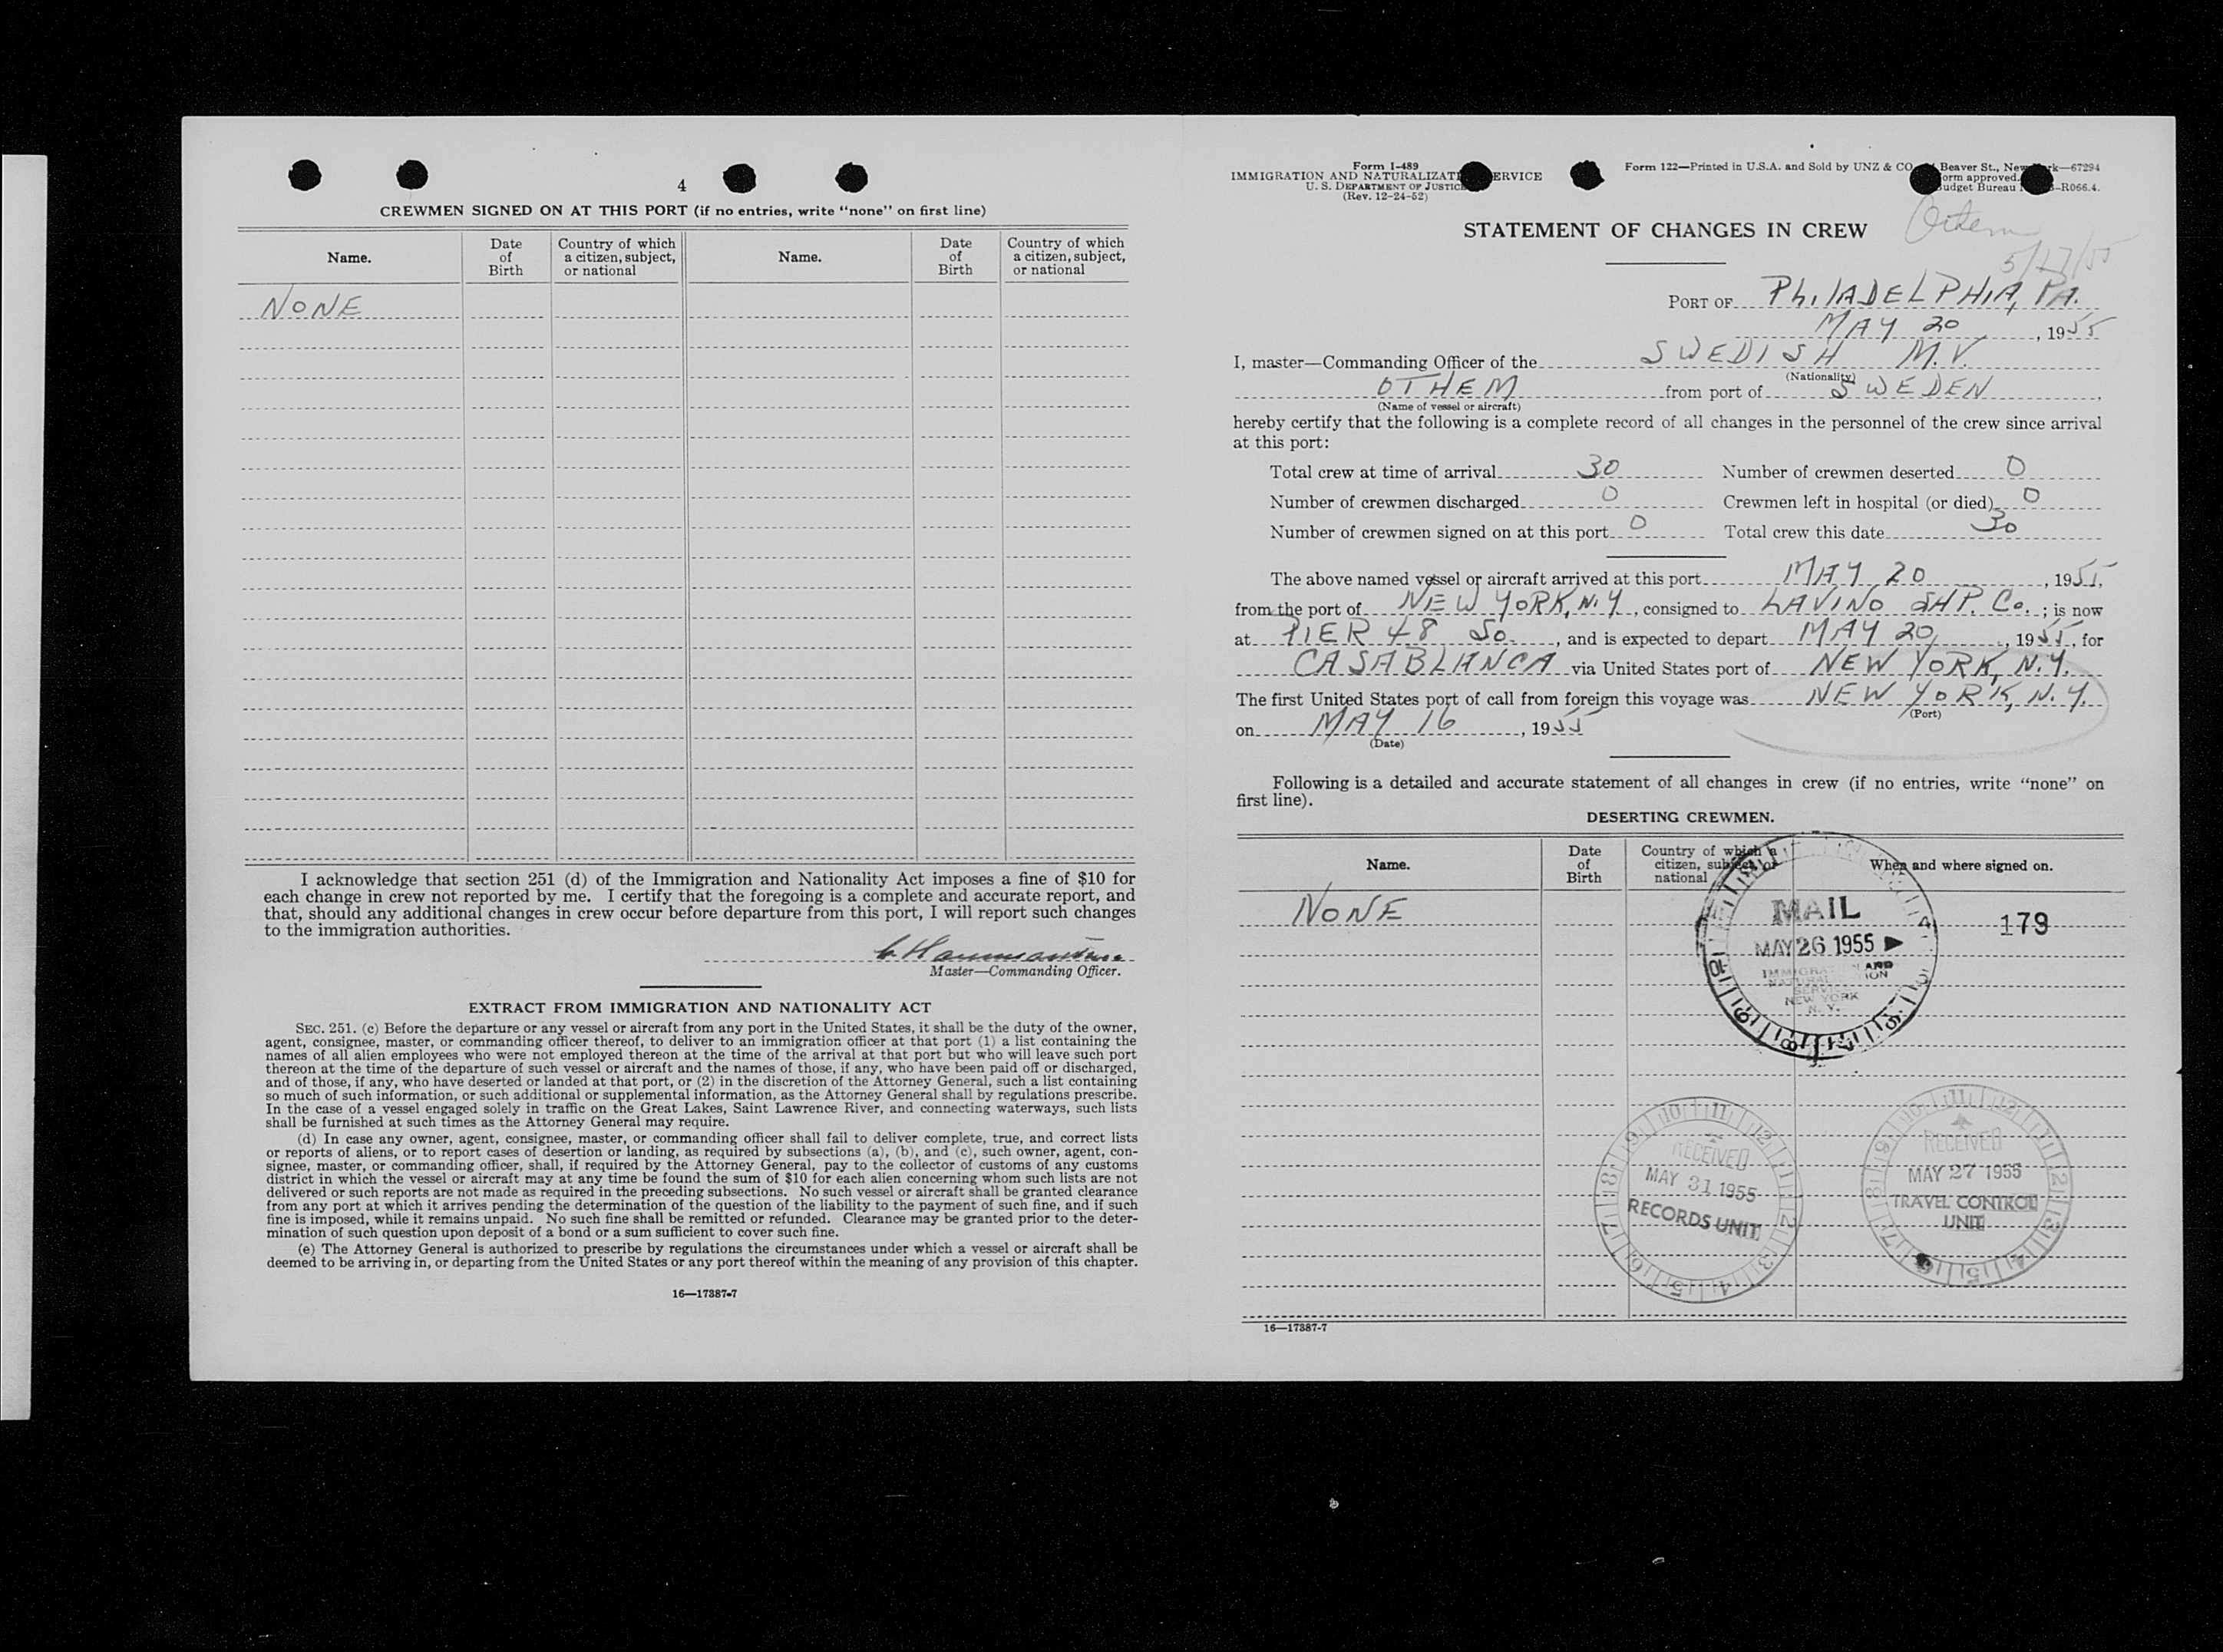 4
CREWMEN SIGNED ON AT THIS PORT (if no entries, write "none" on first line)
Name. Date of Birth Country of which a citizen, subject, or national Name. Date of Birth Country of which a citizen, subject, or national
NONE
I acknowledge that section 251 (d) of the Immigration and Nationality Act imposes a fine of $10 for
each change in crew not reported by me. I certify that the foregoing is a complete and accurate report, and
that, should any additional changes in crew occur before departure from this port, I will report such changes
to the immigration authorities.
Master—Commanding Officer.
EXTRACT FROM IMMIGRATION AND NATIONALITY ACT
SEC. 251. (c) Before the departure or any vessel or aircraft from any port in the United States, it shall be the duty of the owner,
agent, consignee, master, or commanding officer thereof, to deliver to an immigration officer at that port (1) a list containing the
names of all alien employees who were not employed thereon at the time of the arrival at that port but who will leave such port
thereon at the time of the departure of such vessel or aircraft and the names of those, if any, who have been paid off or discharged,
and of those, if any, who have deserted or landed at that port, or (2) in the discretion of the Attorney General, such a list containing
so much of such information, or such additional or supplemental information, as the Attorney General shall by regulations prescribe.
In the case of a vessel engaged solely in traffic on the Great Lakes, Saint Lawrence River, and connecting waterways, such lists
shall be furnished at such times as the Attorney General may require.
(d) In case any owner, agent, consignee, master, or commanding officer shall fail to deliver complete, true, and correct lists
or reports of aliens, or to report cases of desertion or landing, as required by subsections (a), (b), and (c), such owner, agent, con-
signee, master, or commanding officer, shall, if required by the Attorney General, pay to the collector of customs of any customs
district in which the vessel or aircraft may at any time be found the sum of $10 for each alien concerning whom such lists are not
delivered or such reports are not made as required in the preceding subsections. No such vessel or aircraft shall be granted clearance
from any port at which it arrives pending the determination of the question of the liability to the payment of such fine, and if such
fine is imposed, while it remains unpaid. No such fine shall be remitted or refunded. Clearance may be granted prior to the deter-
mination of such question upon deposit of a bond or a sum sufficient to cover such fine.
(e) The Attorney General is authorized to prescribe by regulations the circumstances under which a vessel or aircraft shall be
deemed to be arriving in, or departing from the United States or any port thereof within the meaning of any provision of this chapter.
16—17387-7
Form I-489
IMMIGRATION AND NATURALIZATI ERVICE
U. S. DEPARTMENT OF JUSTICE
(Rev. 12-24-52)
Form 122—Printed in U.S.A. and Sold by UNZ & CO Beaver St., New rk—67294
orm approved.
udget Bureau -R066.4.
STATEMENT OF CHANGES IN CREW
5/27/55
PORT OF PhilADELPHIA, PA.
MAY 20, 1955
I, master—Commanding Officer of the SWEDISH M.V.
(Nationality)
OTHEM from port of SWEDEN
(Name of vessel or aircraft)
hereby certify that the following is a complete record of all changes in the personnel of the crew since arrival
at this port:
Total crew at time of arrival 30 Number of crewmen deserted 0
Number of crewmen discharged 0 Crewmen left in hospital (or died) 0
Number of crewmen signed on at this port 0 Total crew this date 30
The above named vessel or aircraft arrived at this port MAY 20, 1955,
from the port of NEW YORK, N.Y., consigned to LAVINO SHP. Co.; is now
at PIER 48 So., and is expected to depart MAY 20, 1955, for
CASABLANCA via United States port of NEW YORK, N.Y.
The first United States port of call from foreign this voyage was NEW YORK, N.Y.
(Port)
on MAY 16, 1955
(Date)
Following is a detailed and accurate statement of all changes in crew (if no entries, write "none" on
first line).
DESERTING CREWMEN.
Name. Date of Birth Country of which a citizen, subject, or national When and where signed on.
NONE
179
MAIL
MAY 26 1955
IMMIGRATION AND
NATURALIZATION
SERVICE
NEW YORK
N. Y.
RECEIVED
MAY 31 1955
RECORDS UNIT
RECEIVED
MAY 27 1955
TRAVEL CONTROL
UNIT
16—17387-7